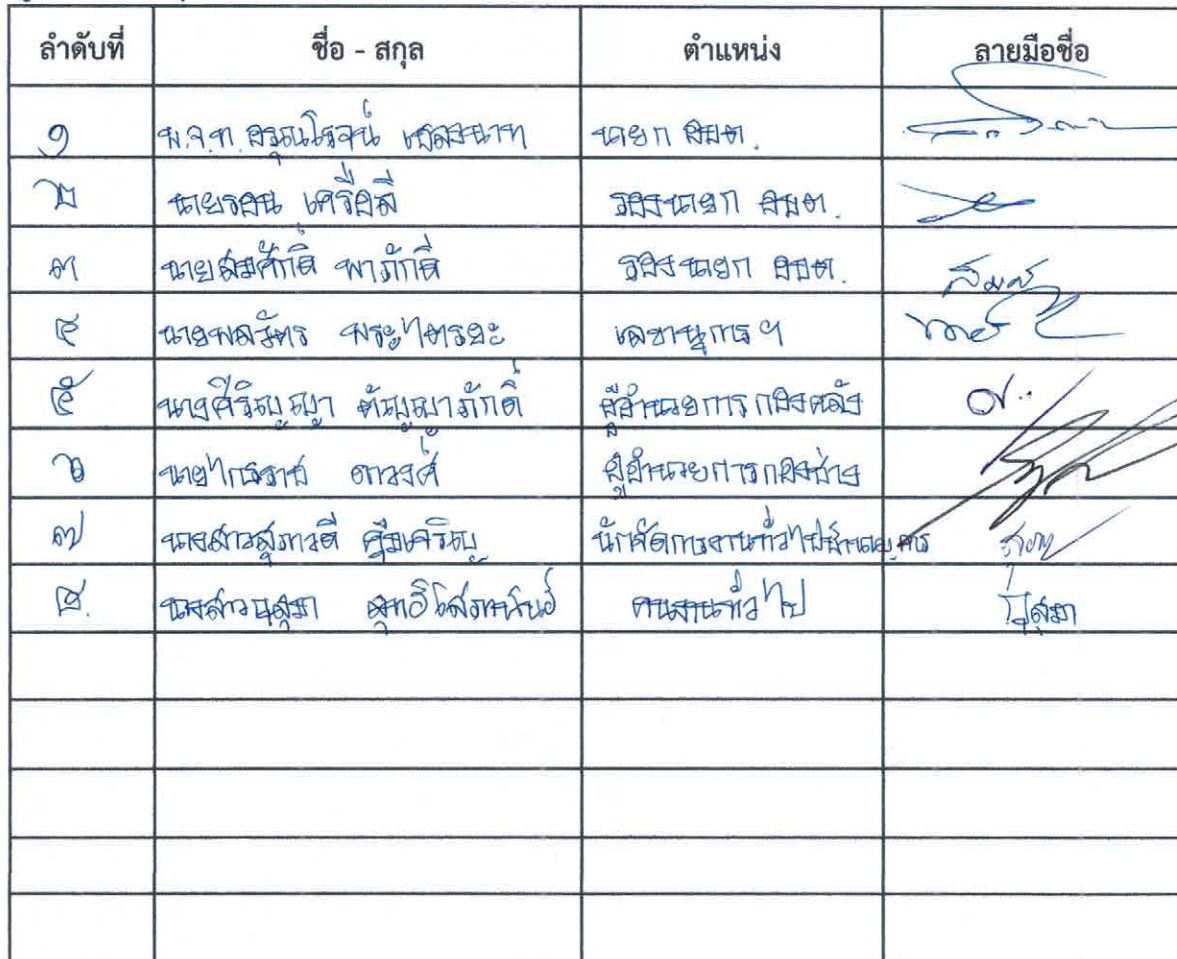 ลำดับที่ ชื่อ - สกุล ตำแหน่ง ลายมือชื่อ
๑ พ.จ.ท. อรุณโรจน์ เชลงนาท นายก อบต.
๒ นายรอน เครือลี รองนายก อบต.
๓ นายสมศักดิ์ พาภักดี รองนายก อบต. สมศ
๔ นายพลวัตร พระไตรยะ เลขานุการฯ
๕ นางศิริญญา ตัญญาภักดิ์ ผู้อำนวยการกองคลัง
๖ นายไกรราช ดาวงค์ ผู้อำนวยการกองช่าง
๗ นางสาวสุภาวดี คุ้มเจริญ นักจัดการงานทั่วไปชำนาญการ
๘. นางสาวนุสมา คนงานทั่วไป นุสมา